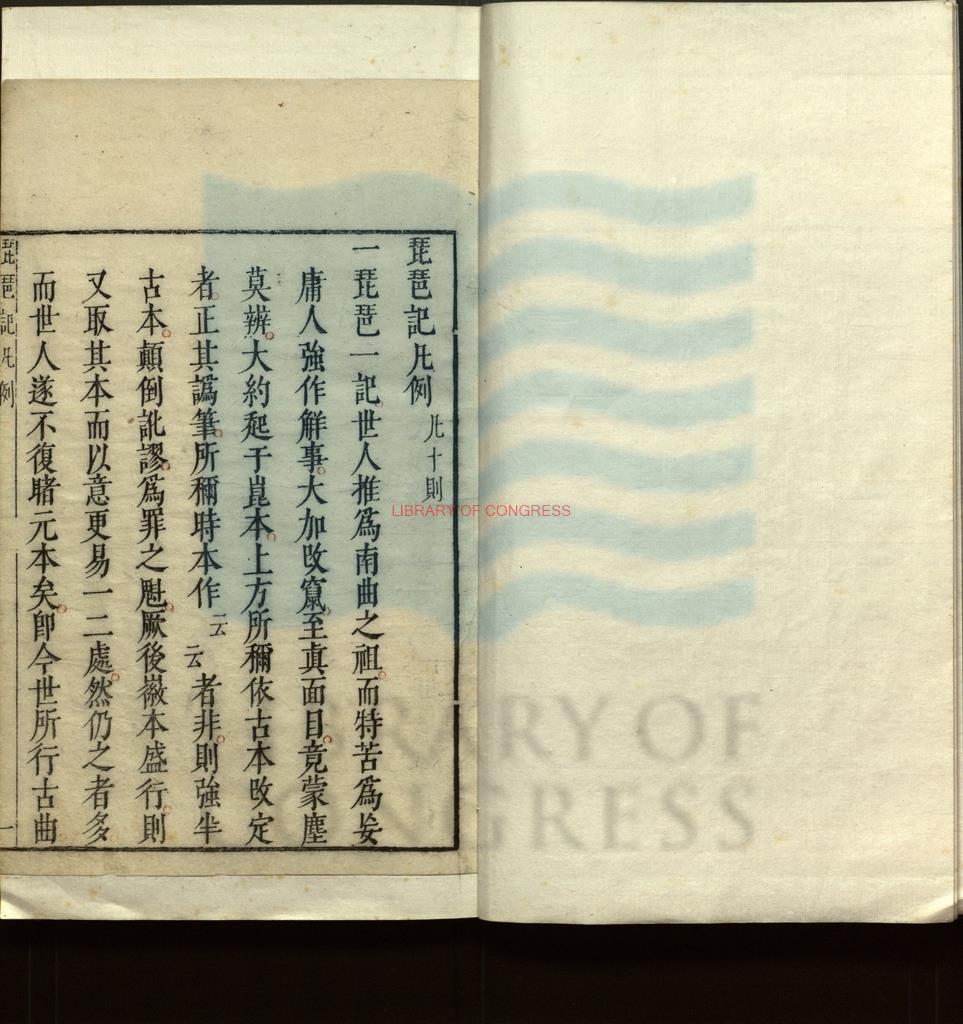 琵琶記凡例 凡十則
一琵琶一記世人推爲南曲之祖而特苦爲妄
庸人強作解事大加改竄至眞面目竟蒙塵
莫辨大約起于崑本上方所稱依古本改定
者正其譌筆所稱時本作云云者非則強半
古本顛倒訛謬爲罪之魁厥後徽本盛行則
又取其本而以意更易一二處然仍之者多
而世人遂不復睹元本矣卽今世所行古曲
琵琶記凡例
一
LIBRARY OF CONGRESS
LIBRARY OF
CONGRESS